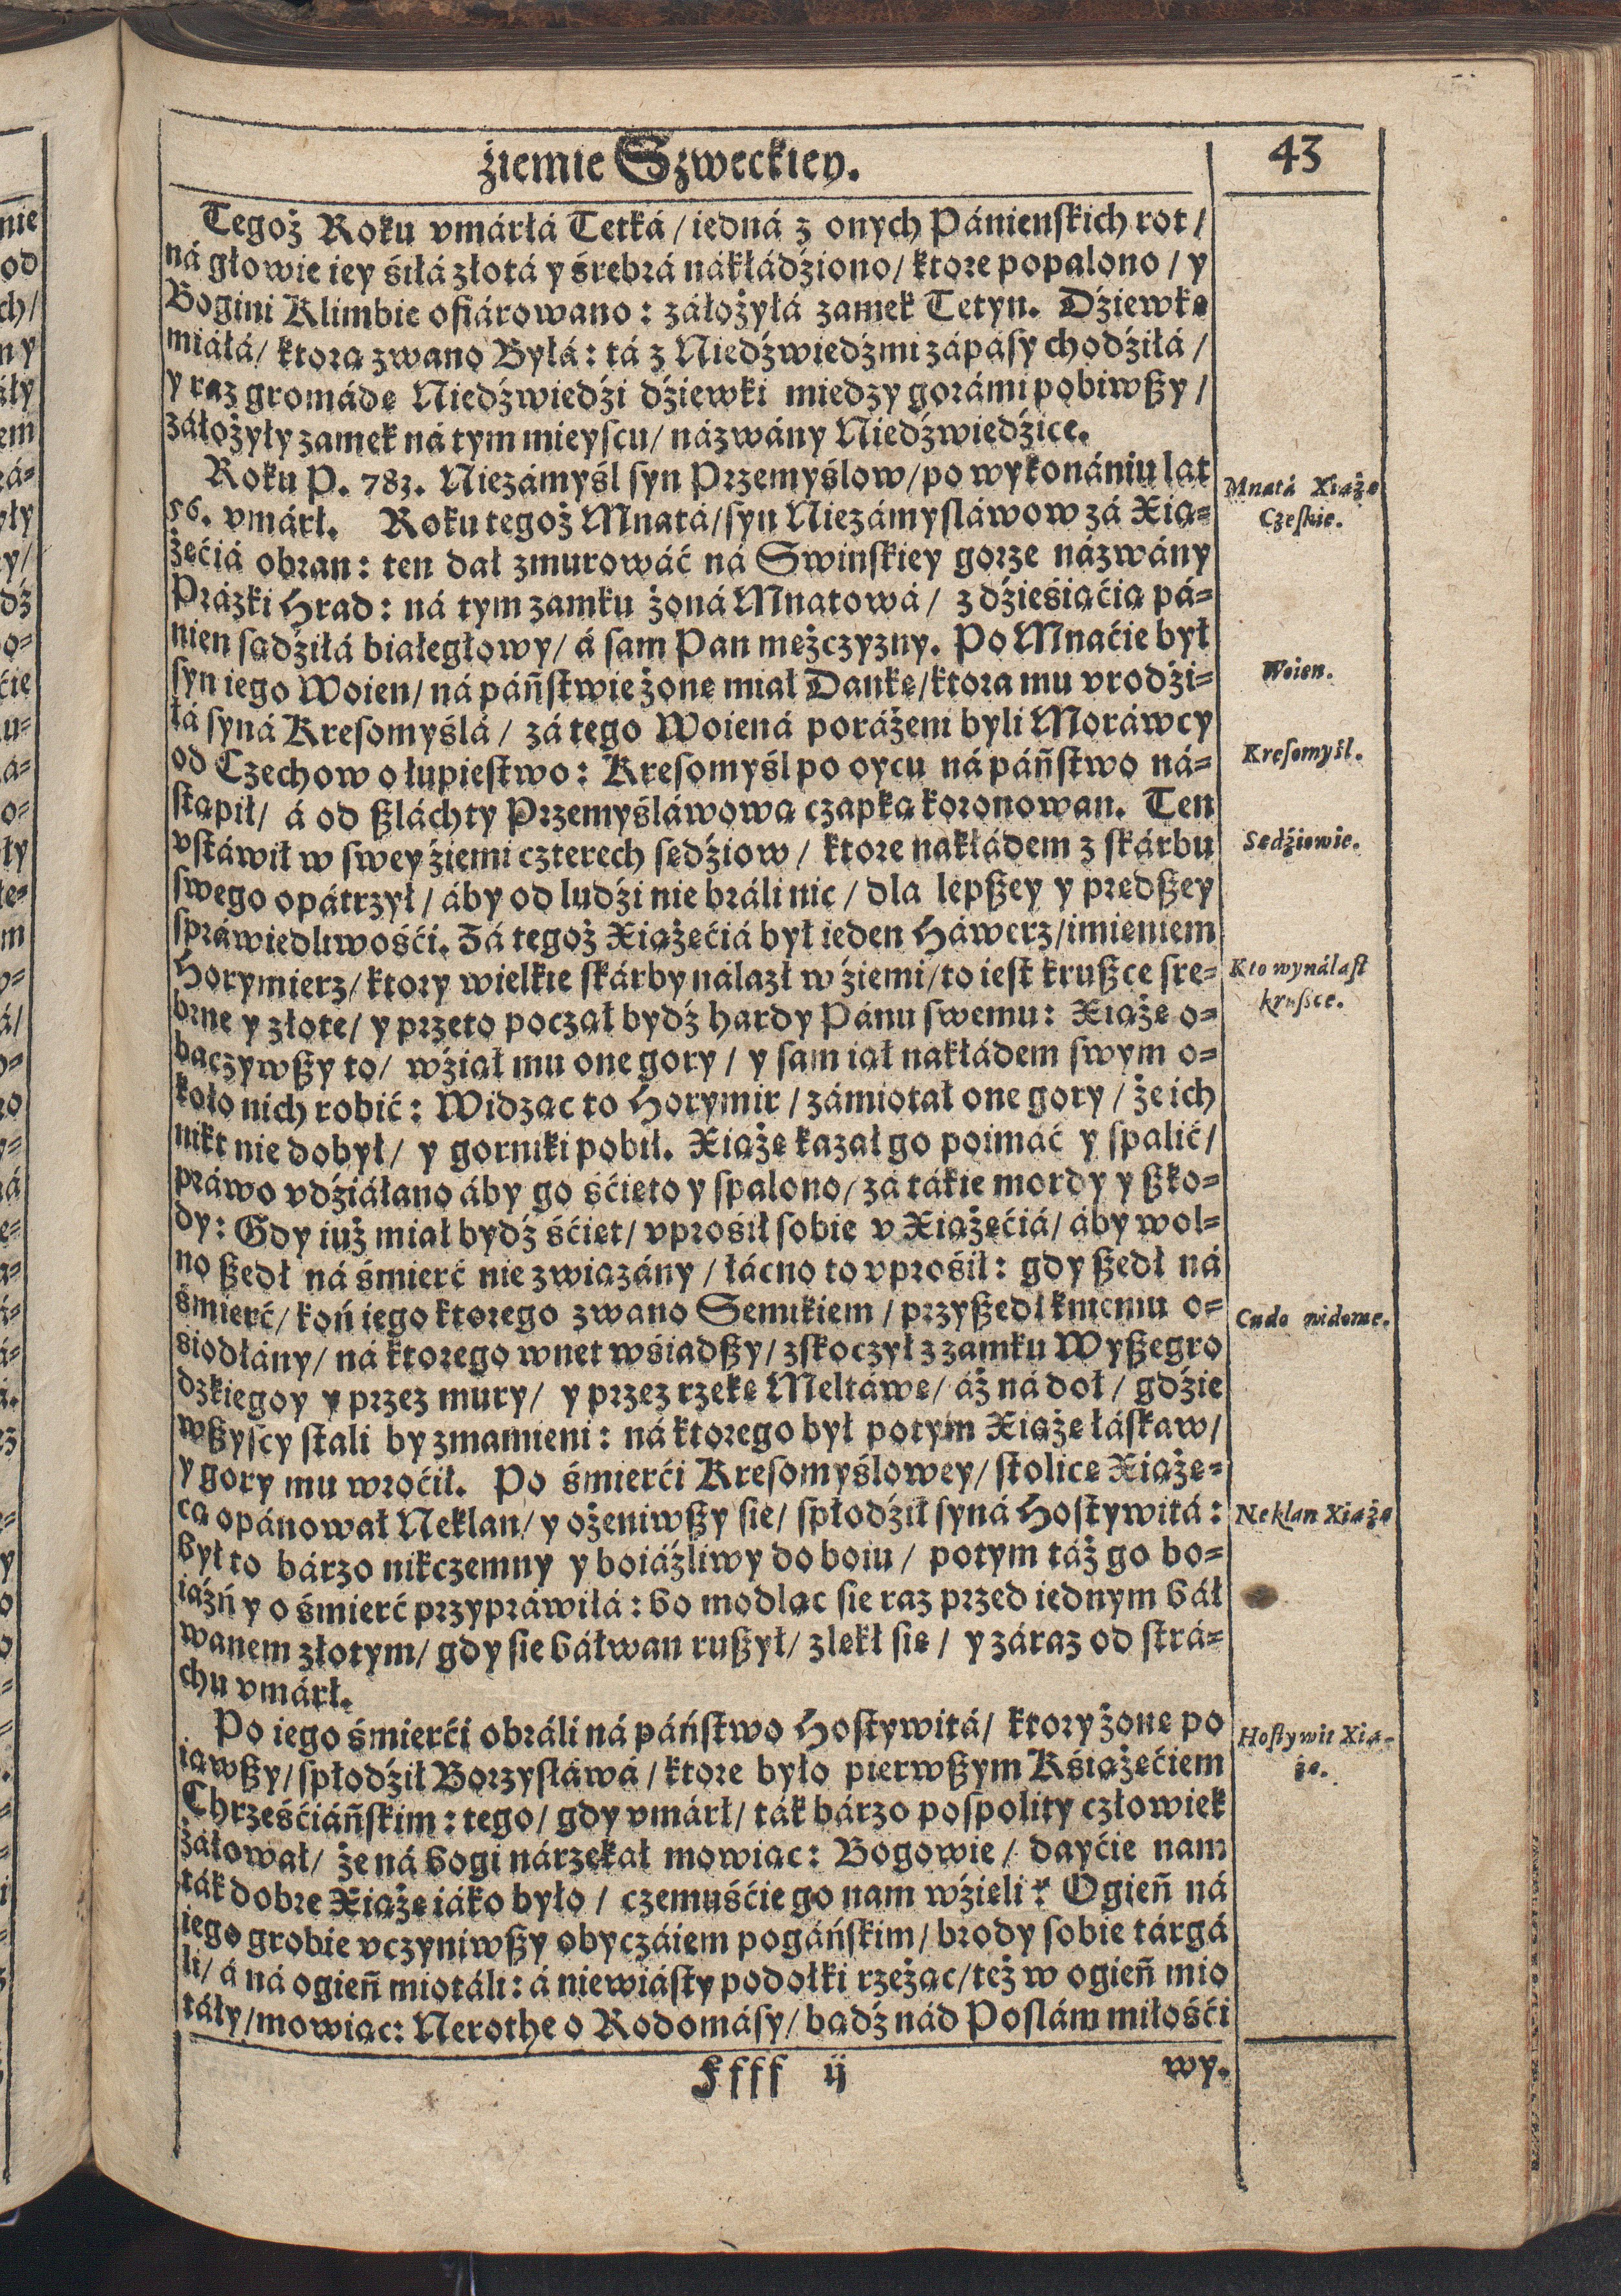 źiemie Szweckiey.
43
Tegoż Roku vmárłá Tetká / iedná z onych Pánienskich rot /
ná głowie iey śiłá złotá y śrebrá nákłádźiono / ktore popalono / y
Bogini Klimbie ofiárowano : záłożyłá zamek Tetyn. Dźiewkę
miáłá / ktorą zwano Byłá : tá z Niedźwiedźmi zápásy chodźiłá /
y raz gromádę Niedźwiedźi dźiewki miedzy gorámi pobiwszy /
záłożyły zamek ná tym mieyscu / názwány Niedźwiedźice.
Roku P. 783. Niezámyśl syn Przemyślow / po wykonániu lat
56. vmárł. Roku tegoż Mnatá / syn Niezámysláwow zá Xią-
żęćiá obran : ten dał zmurowáć ná Swinskiey gorze názwány
Prázki Hrad : ná tym zamku żoná Mnatowá / z dźieśiąćią pá-
nien sądźiłá białegłowy / á sam Pan mężczyzny. Po Mnaćie był
syn iego Woien / ná páństwie żonę miał Dankę / ktora mu vrodźi-
łá syná Kresomyślá / zá tego Woiená poráżeni byli Moráwcy
od Czechow o łupiestwo : Kresomyśl po oycu ná páństwo ná-
stąpił / á od szláchty Przemyśláwową czapką koronowan. Ten
vstáwił w swey źiemi czterech sędźiow / ktore nakłádem z skárbu
swego opátrzył / áby od ludźi nie bráli nic / dla lepszey y prędszey
spráwiedliwośći. Zá tegoż Xiążęćiá był ieden Háwerz / imieniem
Horymierz / ktory wielkie skárby nálazł w źiemi / to iest kruszce sre-
brne y złote / y przeto począł bydź hardy Pánu swemu : Xiążę o-
baczywszy to / wźiął mu one gory / y sam iął nakłádem swym o-
koło nich robić : Widząc to Horymir / zámiotał one gory / że ich
nikt nie dobył / y gorniki pobił. Xiążę kazał go poimáć y spalić /
práwo vdźiáłano áby go śćięto y spalono / zá tákie mordy y szko-
dy : Gdy iuż miał bydź śćięt / vprosił sobie v Xiążęćiá / áby wol-
no szedł ná śmierć nie związány / łácno to vprośił : gdy szedł ná
śmierć / koń iego ktorego zwano Semikiem / przyszedł kniemu o-
siodłány / ná ktorego wnet wśiadszy / zskoczył z zamku Wyszegro
dzkiegoy y przez mury / y przez rzekę Meltáwę / áż ná doł / gdźie
wszyscy stali by zmamieni : ná ktorego był potym Xiążę łáskaw /
y gory mu wroćił. Po śmierći Kresomyślowey / stolicę Xiążę-
cą opánował Neklan / y ożeniwszy sie / spłodźił syná Hostywitá :
był to bárzo nikczemny y boiáźliwy do boiu / potym táż go bo-
iaźń y o śmierć przypráwiłá : bo modląc sie raz przed iednym báł
wanem złotym / gdy sie báłwan ruszył / zlękł się / y záraz od strá-
chu vmárł.
Po iego śmierći obráli ná páństwo Hostywitá / ktory żonę po
iąwszy / spłodźił Borzysláwá / ktore było pierwszym Kśiążęćiem
Chrześćiáńskim : tego / gdy vmárł / ták bárzo pospolity człowiek
żáłował / że ná bogi nárzekał mowiąc : Bogowie / dayćie nam
ták dobre Xiążę iáko było / czemuśćie go nam wźięli? Ogień ná
iego grobie vczyniwszy obyczáiem pogáńskim / brody sobie tárgá
li / á ná ogień miotáli : á niewiásty podołki rzeżąc / też w ogień mio
táły / mowiąc : Nerothe o Rodomásy / bądź nád Poslám miłośći
Ffff ij
wy.
Mnatá Xiążę
Czeskie.
Woien.
Kresomyśl.
Sędźiowie.
Kto wynálast
kruszce.
Cudo widome.
Neklan Xiążę
Hostywit Xią-
żę.